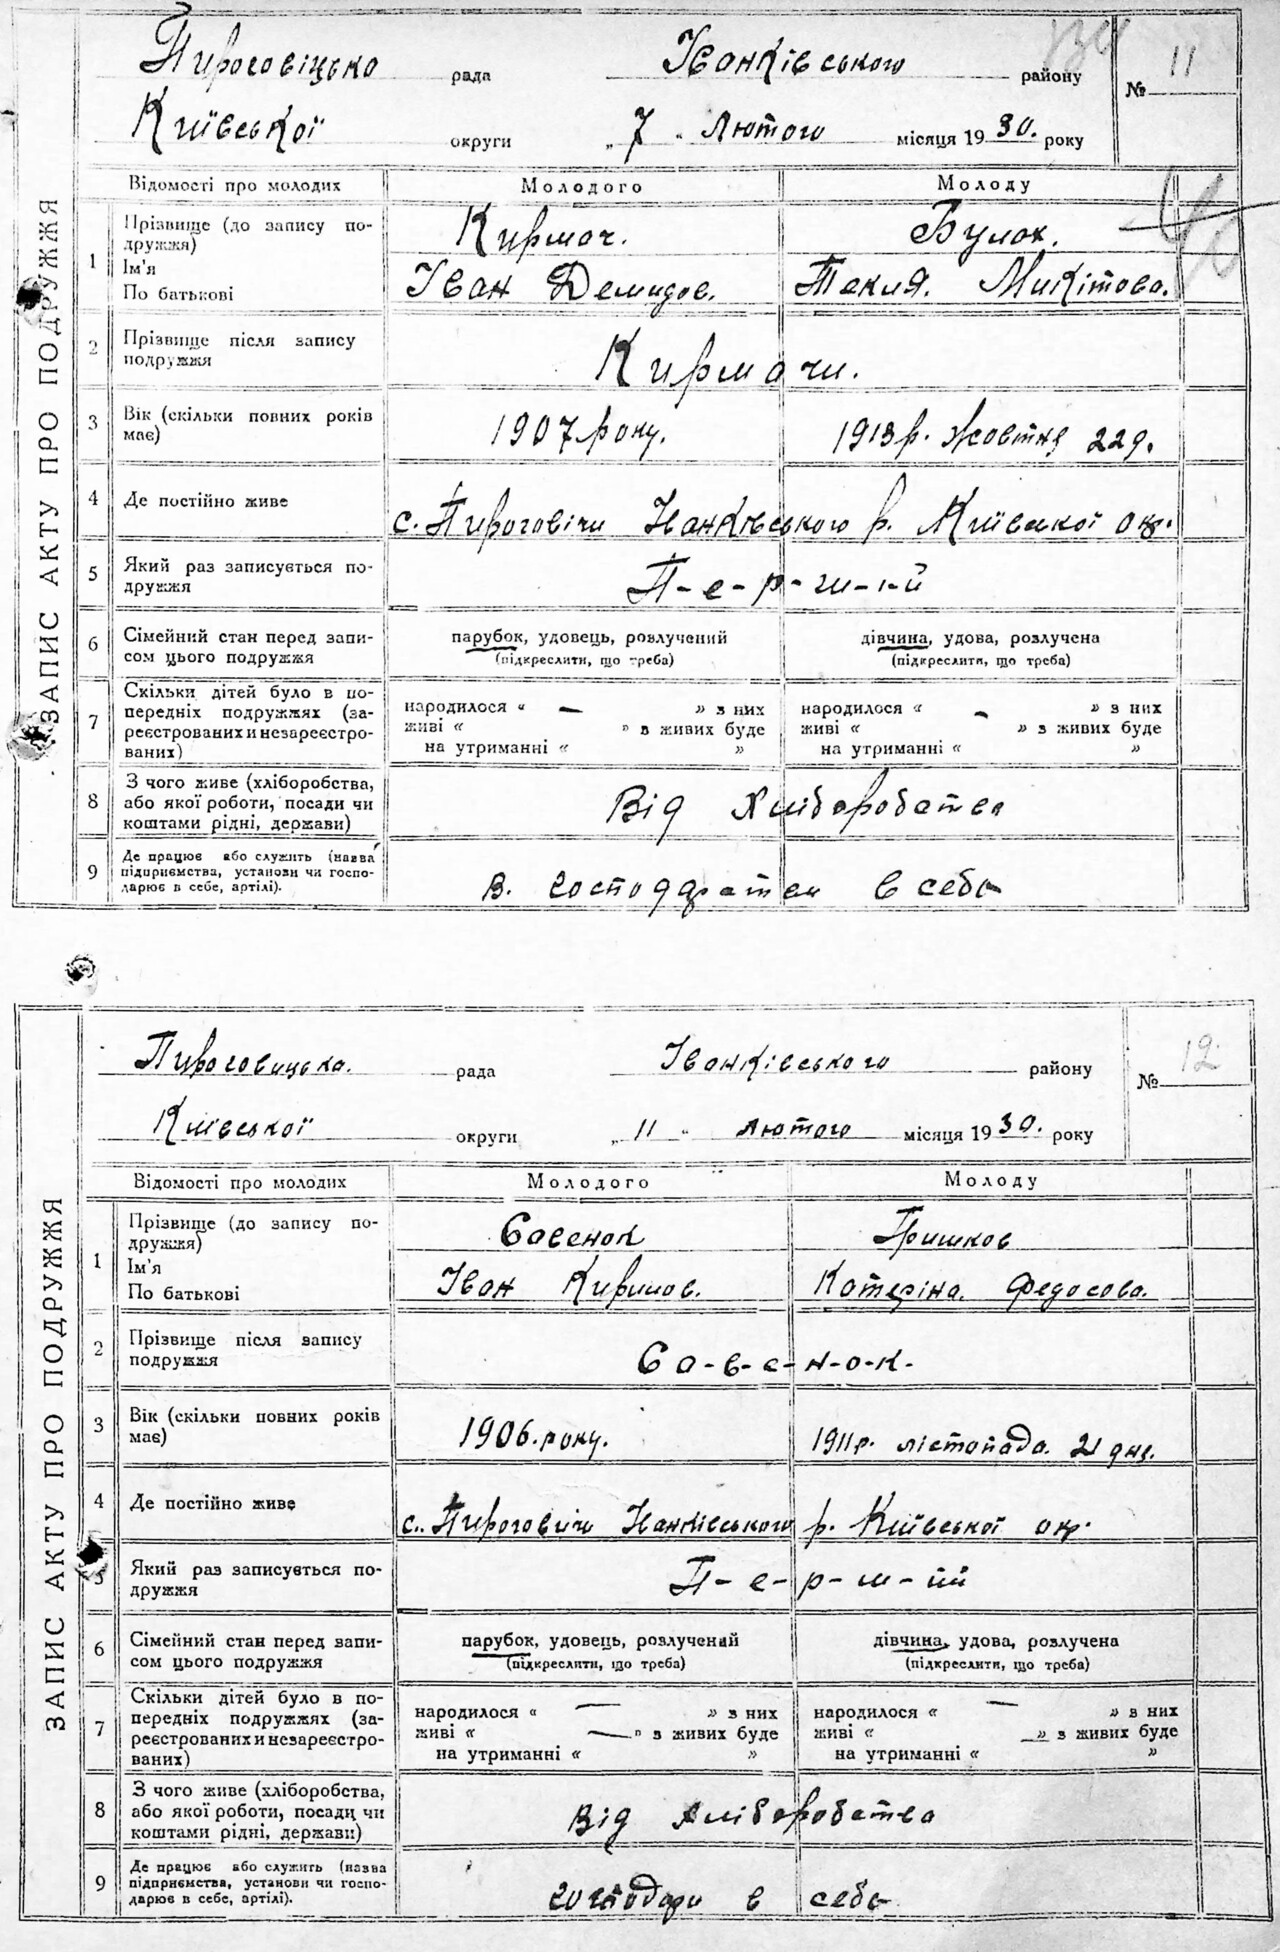 ЗАПИС АКТУ ПРО ПОДРУЖЖЯ
Пироговіцька рада Іванківського району № 11
Київської округи „7" Лютого місяця 1930. року
Відомості про молодих Молодого Молоду
1 Прізвище (до запису по- Кирмач. Булах.
дружжя)
Ім'я Іван Демидов. Текля. Микітова.
По батькові
2 Прізвище після запису Кирмачи.
подружжя
3 Вік (скільки повних років 1907 року. 1913 р. жовтня 22 д.
має)
4 Де постійно живе с. Пироговічи Іванківського р. Київської окр.
5 Який раз записується по- П-е-р-ш-и-й
дружжя
6 Сімейний стан перед запи- парубок, удовець, розлучений дівчина, удова, розлучена
сом цього подружжя (підкреслити, що треба) (підкреслити, що треба)
7 Скільки дітей було в по- народилося « — » з них народилося « - » з них
передніх подружжях (за- живі « » з живих буде живі « » з живих буде
реєстрованих и незареєстро- на утриманні « » на утриманні « »
ваних)
8 З чого живе (хліборобства, Від Хліборобства
або якої роботи, посади чи
коштами рідні, держави)
9 Де працює або служить (назва в. в себе
підприємства, установи чи госпо-
дарює в себе, артілі).
ЗАПИС АКТУ ПРО ПОДРУЖЖЯ
Пироговицька. рада Іванківського району № 12
Київської округи „11" лютого місяця 1930. року
Відомості про молодих Молодого Молоду
1 Прізвище (до запису по- Савенок Гришков
дружжя)
Ім'я Іван Кирилов. Катеріна. Федосова.
По батькові
2 Прізвище після запису С а-в-е-н-о-к.
подружжя
3 Вік (скільки повних років 1906. року. 1911 р. лістопада. 21 дня.
має)
4 Де постійно живе с.. Пироговичи Іванківського р. Київської окр.
5 Який раз записується по- П-е-р-ш-ий
дружжя
6 Сімейний стан перед запи- парубок, удовець, розлучений дівчина, удова, розлучена
сом цього подружжя (підкреслити, що треба) (підкреслити, що треба)
7 Скільки дітей було в по- народилося « — » з них народилося « — » з них
передніх подружжях (за- живі « — » з живих буде живі « — » з живих буде
реєстрованих и незареєстро- на утриманні « » на утриманні « »
ваних)
8 З чого живе (хліборобства, Від хліборобства
або якої роботи, посади чи
коштами рідні, держави)
9 Де працює або служить (назва в себе
підприємства, установи чи госпо-
дарює в себе, артілі).